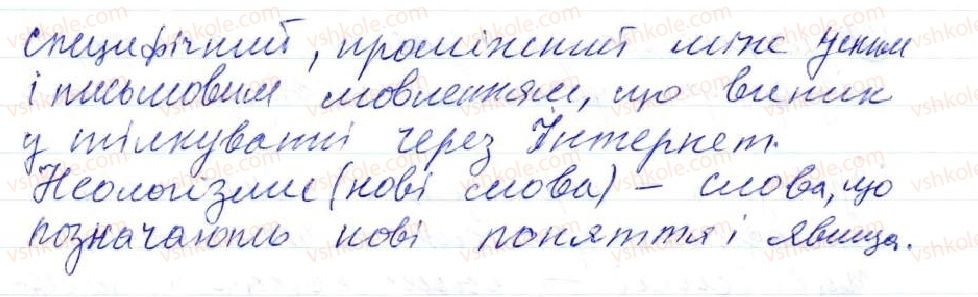 специфічний, проміжний між усним
і писемовим мовленням, що виник
у спілкуванні через Інтернет.
Неологізми (нові слова) – слова, що
позначають нові поняття і явища.